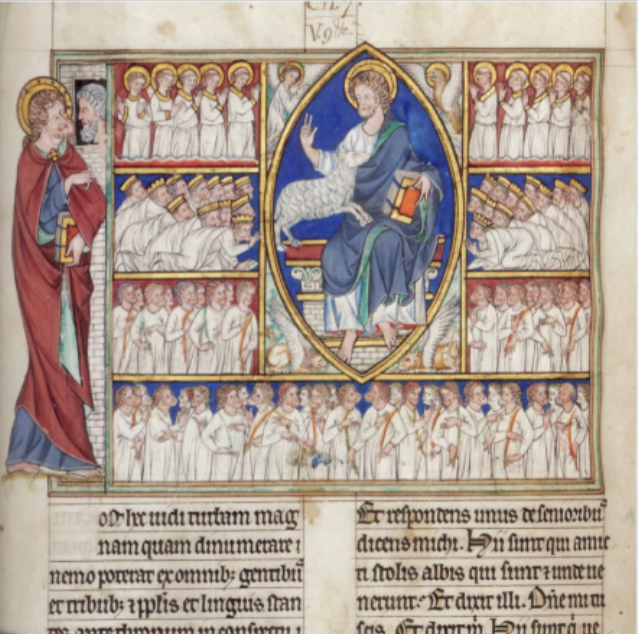 V.9
oſt hec uidi turbam mag
nam quam dinumerare
nemo poterat ex omnibꝫ gentibꝰ
et tribubꝫ ⁊ pplis et linguis ſtan
tes ante thronum in conſpectu
Et respondens unus de senioribꝰ
dicens michi. Hii sunt qui amic
ti stolis albis qui sunt ⁊ unde ue
nerunt. Et dixit illi. Dñe mi tu
scis. Et dixit m̄. Hii sunt q̄ ue